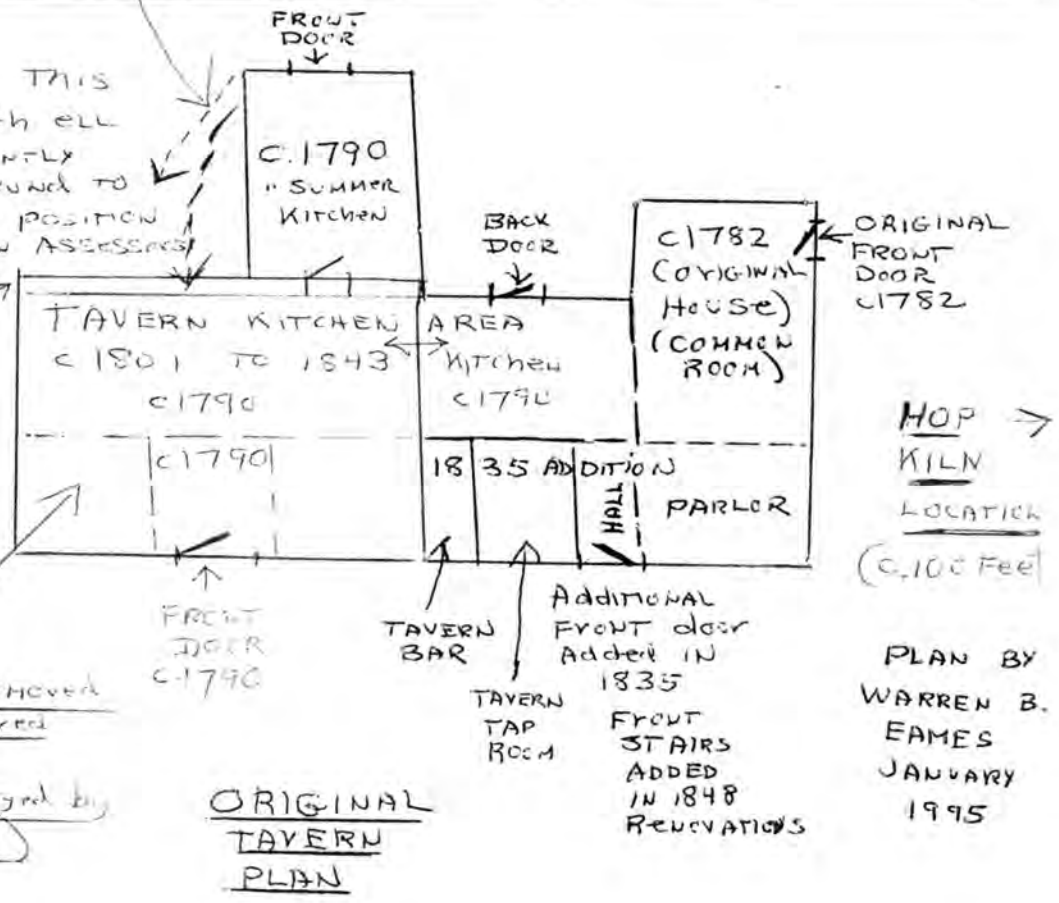 FRONT
DOOR
THIS
ELL
TO
POSITION
ASSESSORS
C.1790
"SUMMER
KITCHEN
BACK
DOOR
C1782
(ORIGINAL
HOUSE)
(COMMON
ROOM)
ORIGINAL
FRONT
DOOR
C1782
TAVERN KITCHEN AREA
C 1801 TO 1843
C1790
KITCHEN
C1790
C1790
18 35 ADDITION
HALL
PARLOR
HOP
KILN
LOCATION
(C.100 Feet
FRONT
DOOR
C.1790
TAVERN
BAR
TAVERN
TAP
ROOM
Additional
Front door
Added IN
1835
Front
STAIRS
ADDED
IN 1848
RENOVATIONS
PLAN BY
WARREN B.
EAMES
JANUARY
1995
moved
by
ORIGINAL
TAVERN
PLAN